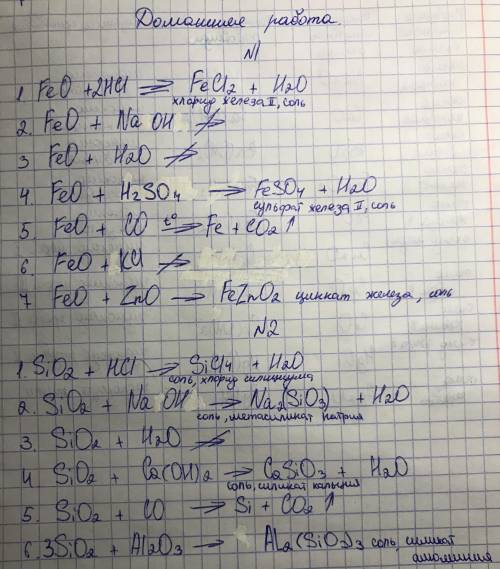 Домашнее работа.
N1
1. FeO + 2HCl ⇒ FeCl2 + H2O
хлорид железа II, соль
2. FeO + NaOH ↛
3 FeO + H2O ↛
4 FeO + H2SO4 → FeSO4 + H2O
сульфат железа II, соль
5. FeO + CO t° ⇒ Fe + CO2↑
6. FeO + KCl ↛
7 FeO + ZnO → FeZnO2 цинкат железа, соль
N2
1. SiO2 + HCl → SiCl4 + H2O
соль, хлорид силициума
2. SiO2 + NaOH → Na2(SiO3) + H2O
соль, метасиликат натрия
3. SiO2 + H2O ↛
4 SiO2 + Ca(OH)2 → CaSiO3 + H2O
соль, силикат кальция
5. SiO2 + CO → Si + CO2↑
6. 3SiO2 + Al2O3 → AL2(SiO3)3 соль, силикат
алюминия